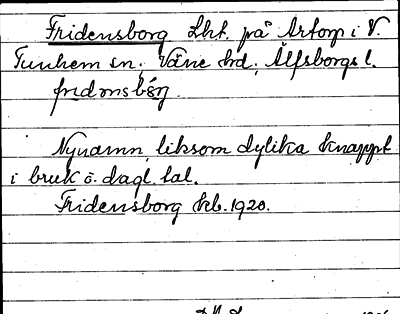 Fridensborg Lht. på Artorp i V.
Tunhem sn; Väne hd; Älfsborgs l.
fridensbórg.
Nynamn, liksom dylika knappt
i bruk ö. dagl. tal.
Fridensborg kb. 1920.